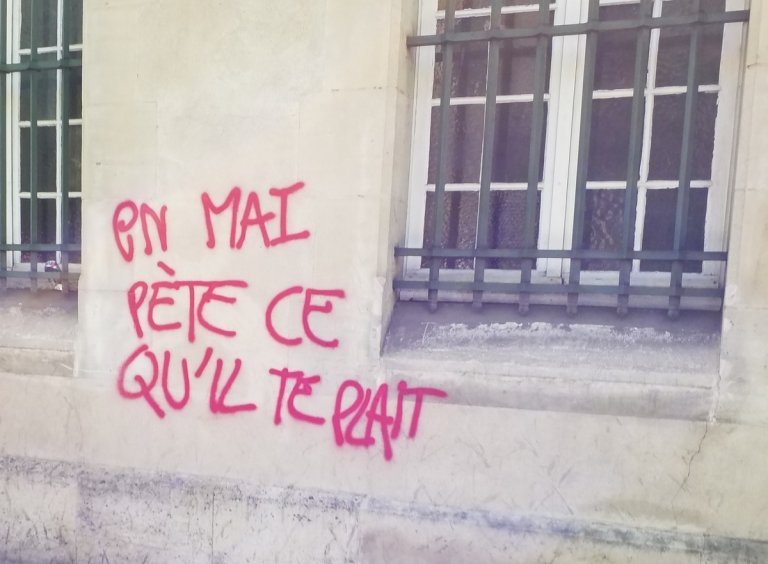 en MAI
PÈTE CE
QU'IL TE PLAIT